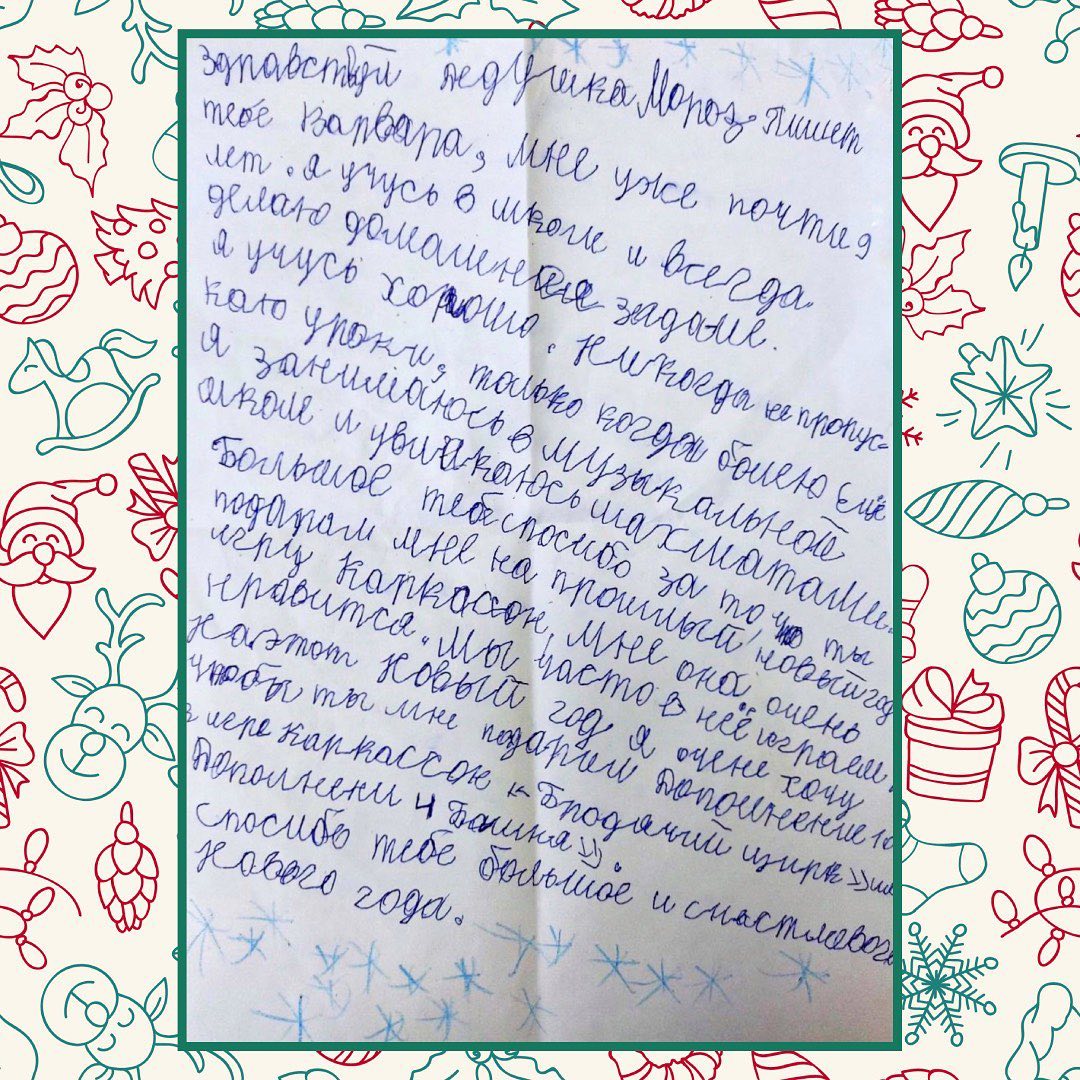 Здравствуй дедушка Мороз. Пишет
тебе Варвара, мне уже почти 9
лет. Я учусь в школе и всегда
делаю домашнее задание.
я учусь хорошо. Никогда не пропус-
каю уроки, только когда болею. Ещё
я занимаюсь в музыкальной
школе и увлекаюсь шахматами.
Большое тебе спосибо за то что ты
подарил мне на прошлый новый год
игру Каркасон, мне она очень
нравится. Мы часто в неё играем.
На этот Новый год я очене хочу
чтобы ты мне подарил Дополнение 10
з игре Каркассон «Бродячий цирк» или
Дополнени 4 Башня».
спосибо тебе большое и счастлевого
Нового года.